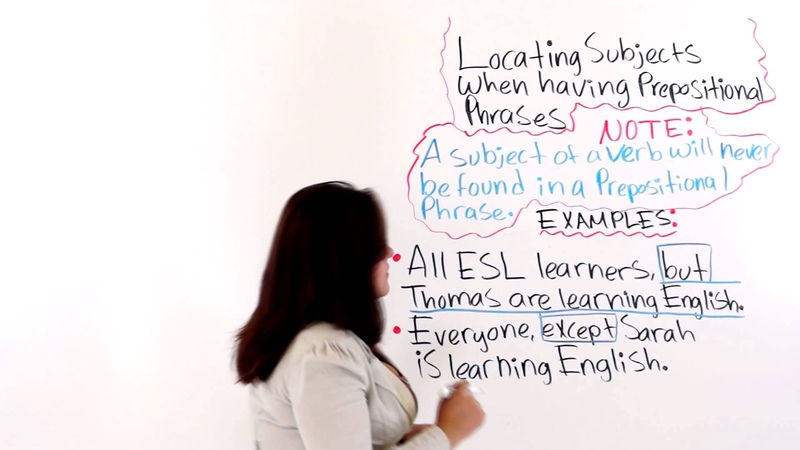 Locating Subjects
when having Prepositional
Phrases
NOTE:
A subject of a verb will never
be found in a Prepositional
Phrase.
EXAMPLES:
• All ESL learners, but
Thomas are learning English.
• Everyone, except Sarah
is learning English.